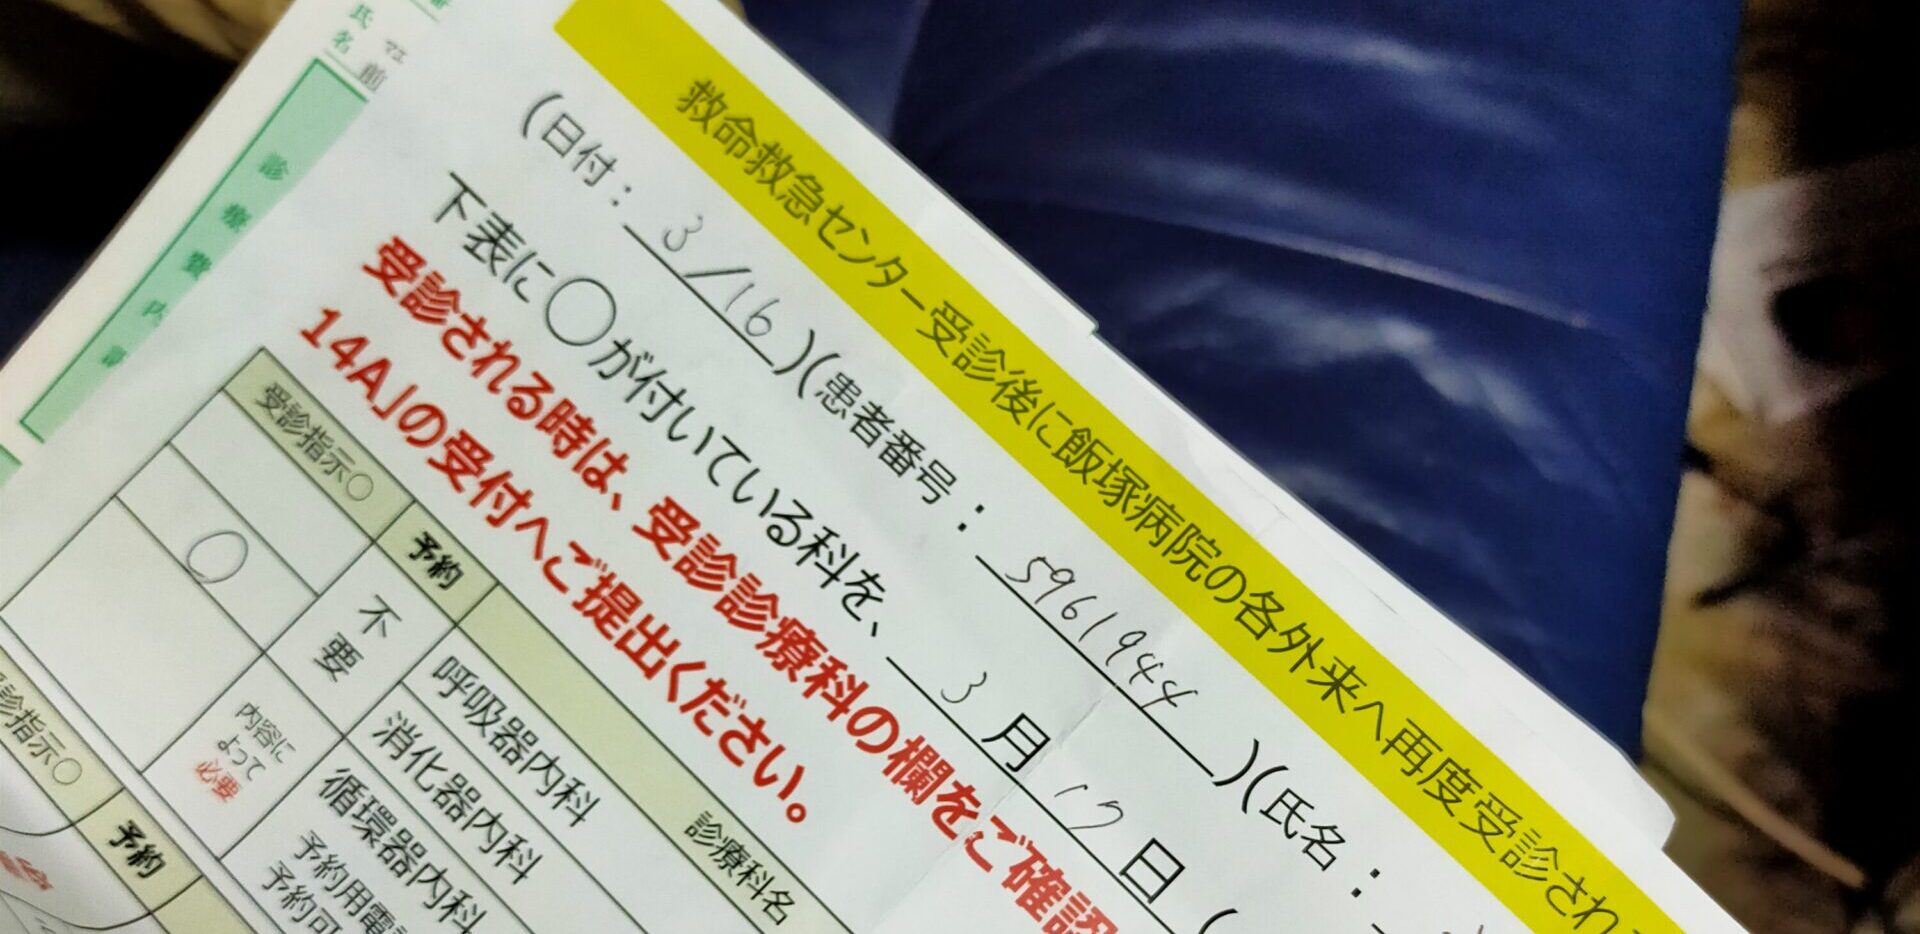 救命救急センター受診後に飯塚病院の各外来へ再度受診され
(日付：3/16)(患者番号：5961944)(氏名：
下表に○が付いている科を、3月17日(
受診される時は、受診診療科の欄をご確認
14A」の受付へご提出ください。
受診指示○ 予約 診療科名
不要 呼吸器内科
○ 消化器内科
内容によって必要 循環器内科
予約用電
予約可
診指示○ 予約
氏名 マエ 前
診療費内訳